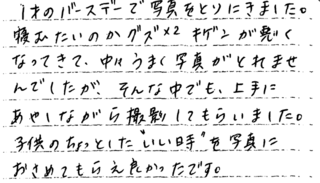 1才のバースデーで写真をとりにきました。
寝むたいのかグズ×2 キゲンが悪く
なってきて、中々うまく写真がとれませ
んでしたが、そんな中でも、上手に
あやしながら撮影してもらいました。
子供のちょっとした"いい日寺"を写真に
おさめてもらえ良かったです。